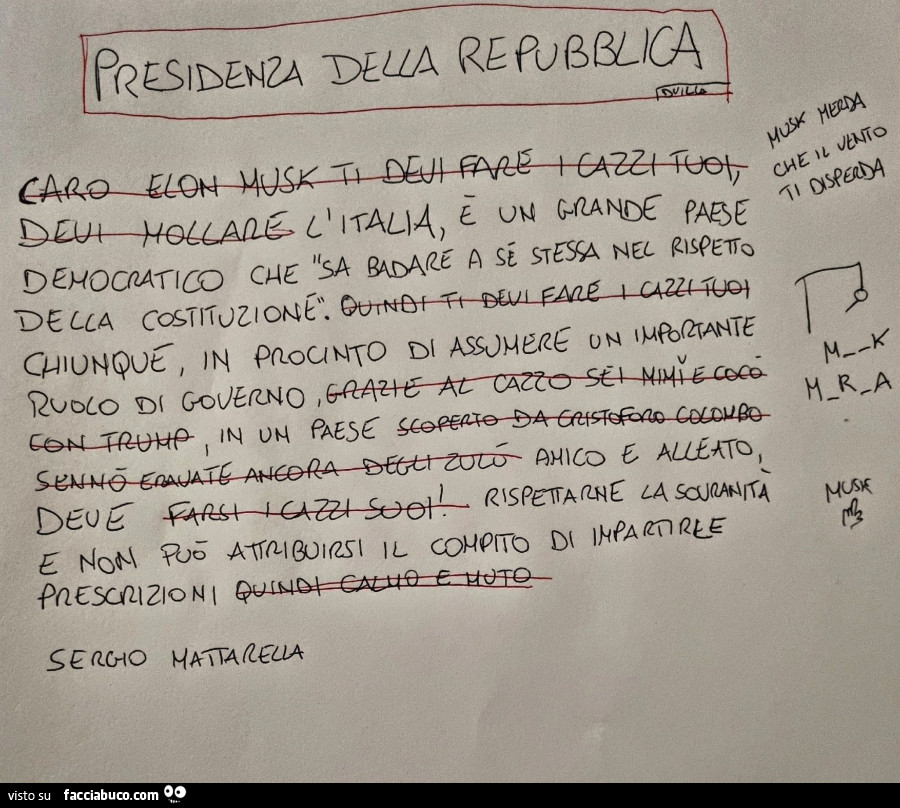 PRESIDENZA DELLA REPUBBLICA
DUILLO
CARO ELON MUSK TI DEVI FARE I CAZZI TUOI,
DEVI MOLLARE L'ITALIA, È UN GRANDE PAESE
DEMOCRATICO CHE "SA BADARE A SÉ STESSA NEL RISPETTO
DELLA COSTITUZIONE". QUINDI TI DEVI FARE I CAZZI TUOI
CHIUNQUE, IN PROCINTO DI ASSUMERE UN IMPORTANTE
RUOLO DI GOVERNO, GRAZIE AL CAZZO SEI MIMÌ E COCÒ
CON TRUMP, IN UN PAESE SCOPERTO DA CRISTOFORO COLOMBO
SENNÒ ERAVATE ANCORA DEGLI ZULÒ AMICO E ALLEATO,
DEVE FARSI I CAZZI SUOI! RISPETTARNE LA SOVRANITÀ
E NON PUÒ ATTRIBUIRSI IL COMPITO DI IMPARTIRLE
PRESCRIZIONI QUINDI CALMO E MUTO
SERGIO MATTARELLA
MUSK MERDA
CHE IL VENTO
TI DISPERDA
M__K
M_R_A
MUSK
visto su facciabuco.com